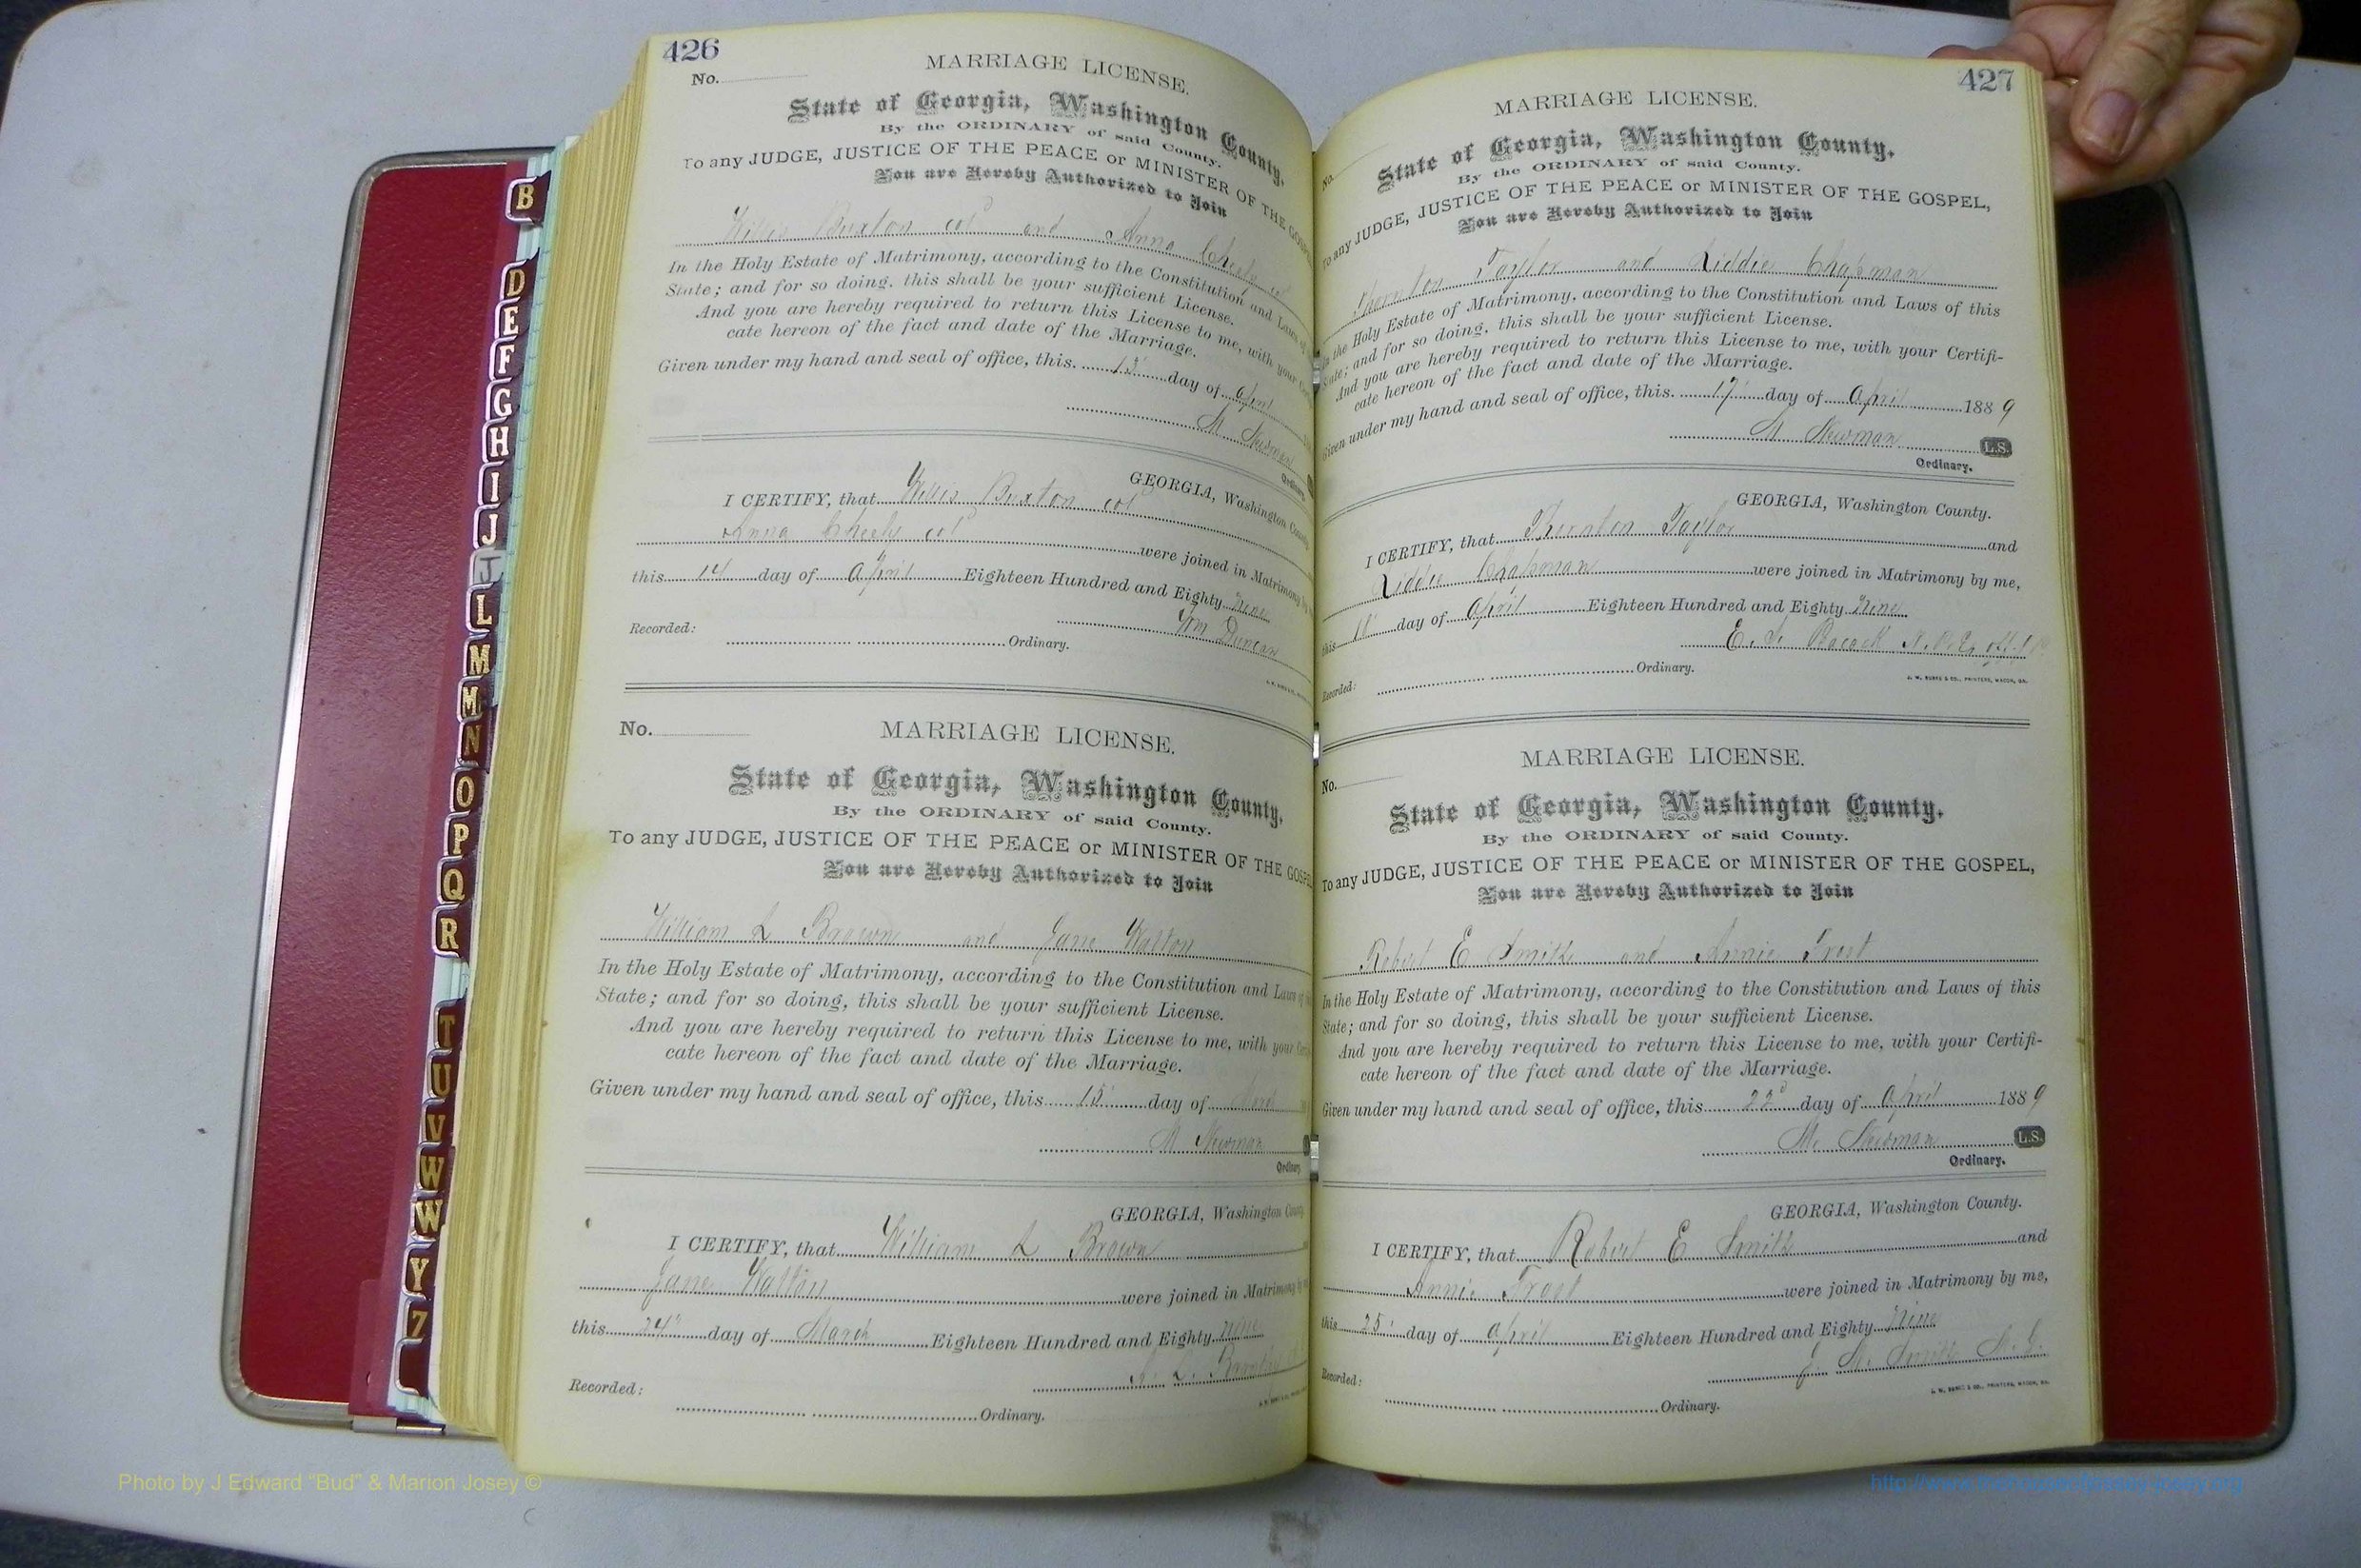 426
No.
MARRIAGE LICENSE.
State of Georgia, Washington County.
By the ORDINARY of said County.
To any JUDGE, JUSTICE OF THE PEACE or MINISTER OF THE GOSPEL
You are Hereby Authorized to Join
Willis Buxton col and Anna Cheely col
In the Holy Estate of Matrimony, according to the Constitution and Laws of
State; and for so doing, this shall be your sufficient License.
And you are hereby required to return this License to me, with your
cate hereon of the fact and date of the Marriage.
Given under my hand and seal of office, this 13 day of April
M Newman
Ordinary.
GEORGIA, Washington County
I CERTIFY, that Willis Buxton col
Anna Cheely col were joined in Matrimony
this 14 day of April Eighteen Hundred and Eighty nine
Wm Duncan
Recorded: Ordinary.
No.
MARRIAGE LICENSE.
State of Georgia, Washington County.
By the ORDINARY of said County.
To any JUDGE, JUSTICE OF THE PEACE or MINISTER OF THE GOSPEL
You are Hereby Authorized to Join
William L Brown and Jane Walton
In the Holy Estate of Matrimony, according to the Constitution and Laws of
State; and for so doing, this shall be your sufficient License.
And you are hereby required to return this License to me, with your
cate hereon of the fact and date of the Marriage.
Given under my hand and seal of office, this 15 day of March
M Newman
Ordinary
GEORGIA, Washington County
I CERTIFY, that William L Brown
Jane Walton were joined in Matrimony
this 24" day of March Eighteen Hundred and Eighty nine
Recorded: Ordinary.
427
MARRIAGE LICENSE.
No.
State of Georgia, Washington County.
By the ORDINARY of said County.
To any JUDGE, JUSTICE OF THE PEACE or MINISTER OF THE GOSPEL,
You are Hereby Authorized to Join
Thornton Taylor and Liddie Chapman
In the Holy Estate of Matrimony, according to the Constitution and Laws of this
State; and for so doing, this shall be your sufficient License.
And you are hereby required to return this License to me, with your Certifi-
cate hereon of the fact and date of the Marriage.
Given under my hand and seal of office, this 17 day of April 1889
M Newman L.S.
Ordinary.
GEORGIA, Washington County.
I CERTIFY, that Thornton Taylor and
Liddie Chapman were joined in Matrimony by me,
this day of April Eighteen Hundred and Eighty nine
Recorded: Ordinary.
J. W. BURKE & CO., PRINTERS, MACON, GA.
MARRIAGE LICENSE.
No.
State of Georgia, Washington County.
By the ORDINARY of said County.
To any JUDGE, JUSTICE OF THE PEACE or MINISTER OF THE GOSPEL,
You are Hereby Authorized to Join
Robert E Smith and Annie Frost
In the Holy Estate of Matrimony, according to the Constitution and Laws of this
State; and for so doing, this shall be your sufficient License.
And you are hereby required to return this License to me, with your Certifi-
cate hereon of the fact and date of the Marriage.
Given under my hand and seal of office, this 22d day of April 1889
M. Newman L.S.
Ordinary.
GEORGIA, Washington County.
I CERTIFY, that Robert E Smith and
Annie Frost were joined in Matrimony by me,
this 25 day of April Eighteen Hundred and Eighty nine
J. M. Smith M. G.
Recorded: Ordinary.
J. W. BURKE & CO., PRINTERS, MACON, GA.
B
D
E
F
G
H
I
J
J
L
M
M
N
O
P
Q
R
T
U
V
W
W
Y
Z
Photo by J Edward "Bud" & Marion Josey ©